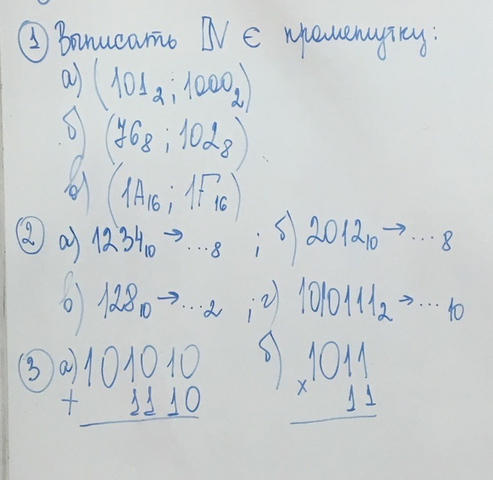 ① Выписать ℕ ∈ промежутку:
а) (101₂ ; 1000₂)
б) (76₈ ; 102₈)
в) (1A₁₆ ; 1F₁₆)
② а) 1234₁₀ → ...₈ ; б) 2012₁₀ → ...₈
в) 128₁₀ → ...₂ ; г) 1010111₂ → ...₁₀
③ а) 101010 б) 1011
+ 1110 × 11